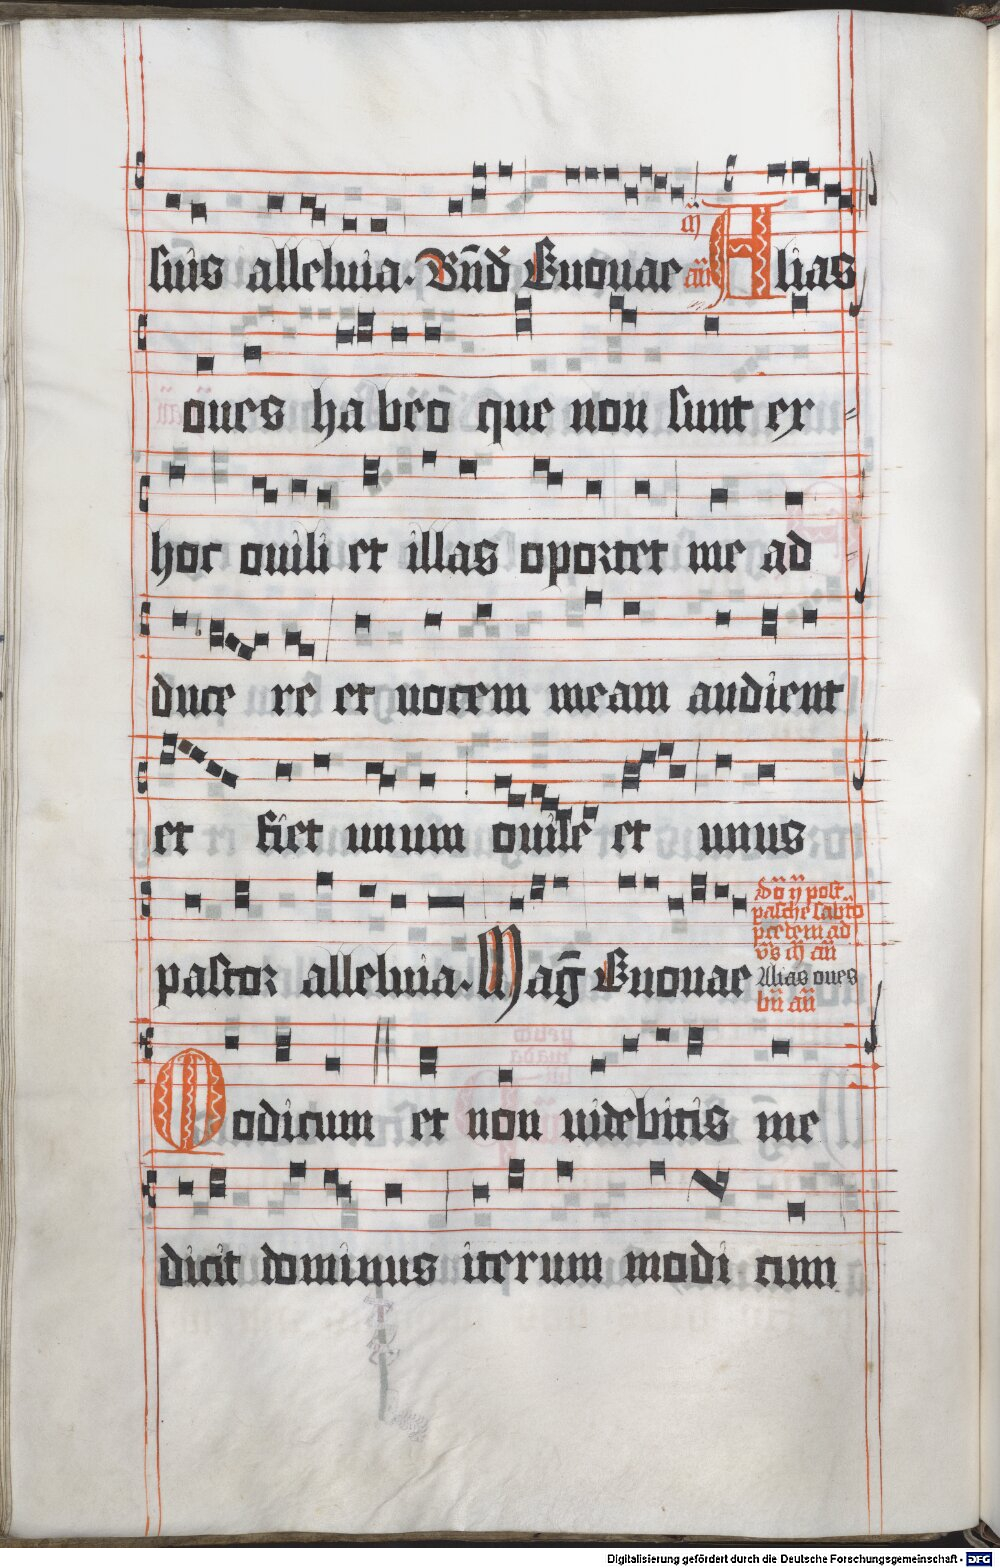 suis alleluia. Bn̄d Euouae añ Alias
oues habeo que non sunt ex
hoc ouili et illas oportet me ad
ducere et uocem meam audient
et fiet unum ouile et unus
pastor alleluia. Mag̅ Euouae
post
pasche sabb̅to
ad
añ
Alias oues
añ
Modicum et non uidebitis me
dicit dominus iterum modicum
Digitalisierung gefördert durch die Deutsche Forschungsgemeinschaft - DFG